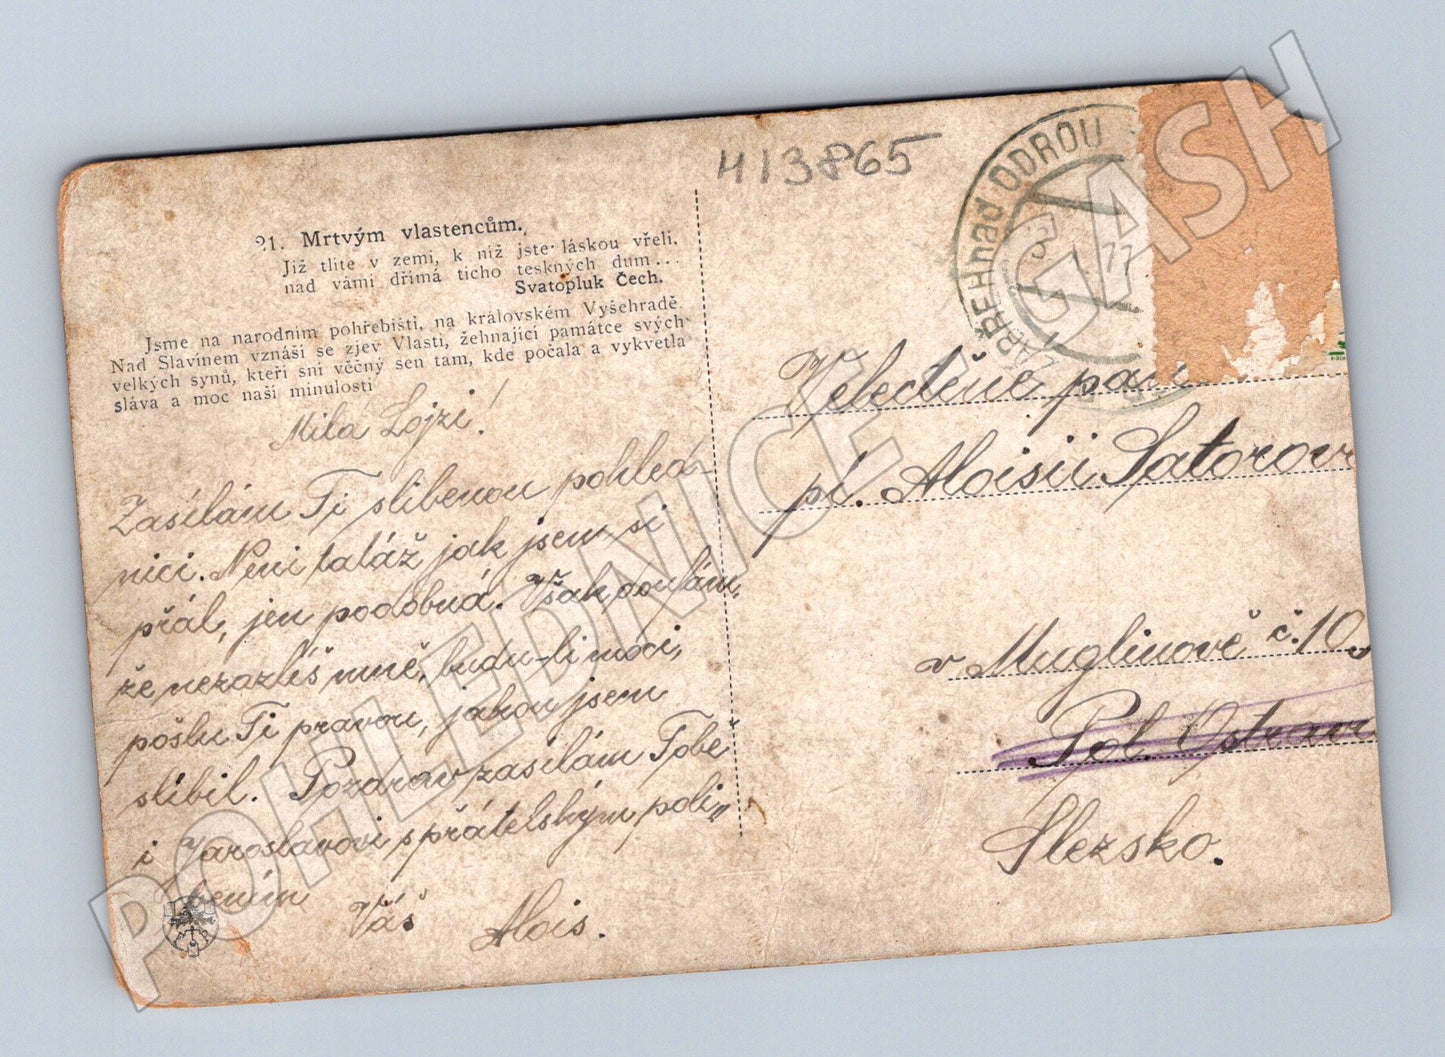 413865
21. Mrtvým vlastencům.
Již tlíte v zemi, k níž jste láskou vřeli,
nad vámi dřímá ticho teskných dum...
Svatopluk Čech.
Jsme na narodním pohřebišti, na královském Vyšehradě.
Nad Slavínem vznáší se zjev Vlasti, žehnající památce svých
velkých synů, kteří sní věčný sen tam, kde počala a vykvetla
sláva a moc naší minulosti
Milá Lojzi!
Zasílám Ti slíbenou pohled-
nici. Není taláž jak jsem si
přál, jen podobná. Však doufám,
že nezazlíš mně, budu-li moci,
pošlu Ti pravou, jakou jsem
slíbil. Pozdrav zasílám Tobě
i Jaroslavovi s přátelským polí„
bením
Váš Alois.
ZÁBŘEH nad ODROU
Velectěné paní
pí. Aloisii Satorov
v Muglinově č. 10,
Pol. Ostrav
Slezsko.
POHLEDNICE - GASH